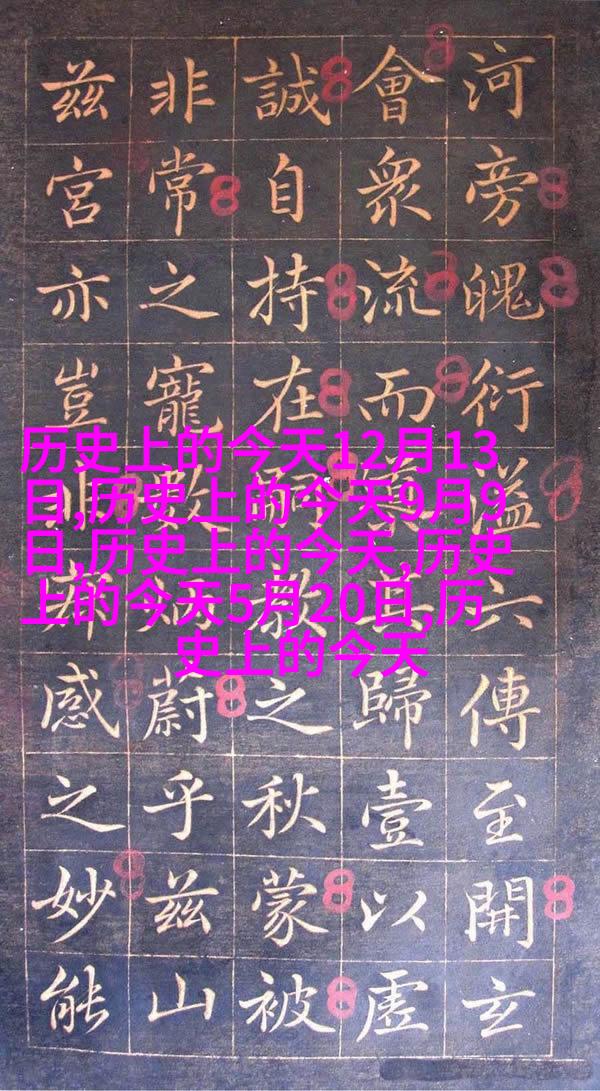 河旁魄衍溢六傳至開玄
會衆流而歸壹以虛
誠自持在教之秋蒙被
非常之寵蔚乎兹山
兹宮亦豈非感之妙能
历史上的今天12月13
日,历史上的今天9月9
日,历史上的今天,历史
上的今天5月20日,历
史上的今天